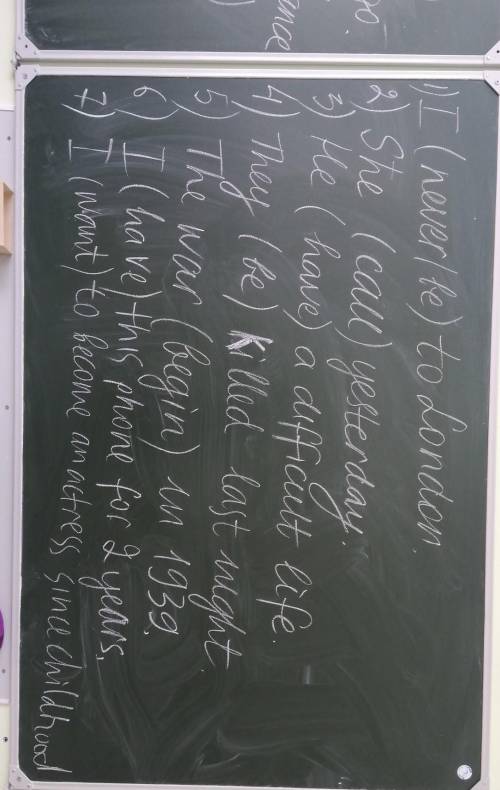 oo.
ance
1) I (never/be) to London.
2) She (call) yesterday.
3) He (have) a difficult life.
4) They (be) killed last night.
5) The war (begin) in 1939.
6) I (have) this phone for 2 years.
7) I (want) to become an actress since childhood